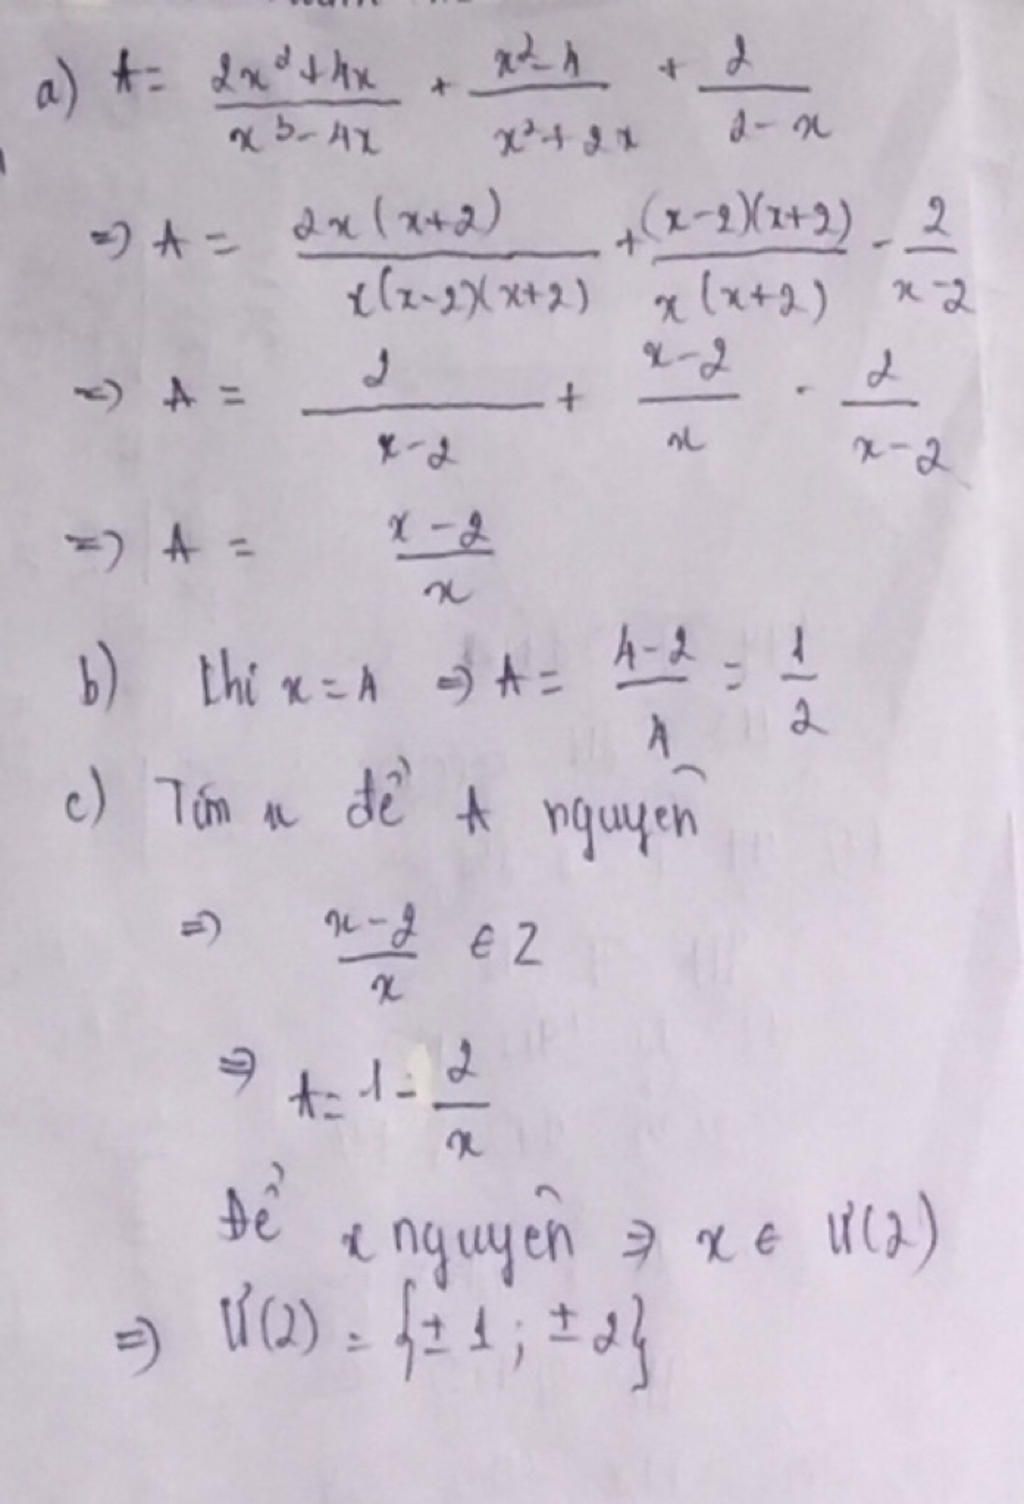 a) A = \frac{2x^2+4x}{x^3-4x} + \frac{x^2-4}{x^2+2x} + \frac{2}{2-x}
=> A = \frac{2x(x+2)}{x(x-2)(x+2)} + \frac{(x-2)(x+2)}{x(x+2)} - \frac{2}{x-2}
=> A = \frac{2}{x-2} + \frac{x-2}{x} - \frac{2}{x-2}
=> A = \frac{x-2}{x}
b) Khi x = 4 => A = \frac{4-2}{4} = \frac{1}{2}
c) Tìm x để A nguyên
=> \frac{x-2}{x} ∈ Z
=> A = 1 - \frac{2}{x}
Để x nguyên => x ∈ Ư(2)
=> Ư(2) = {±1; ±2}